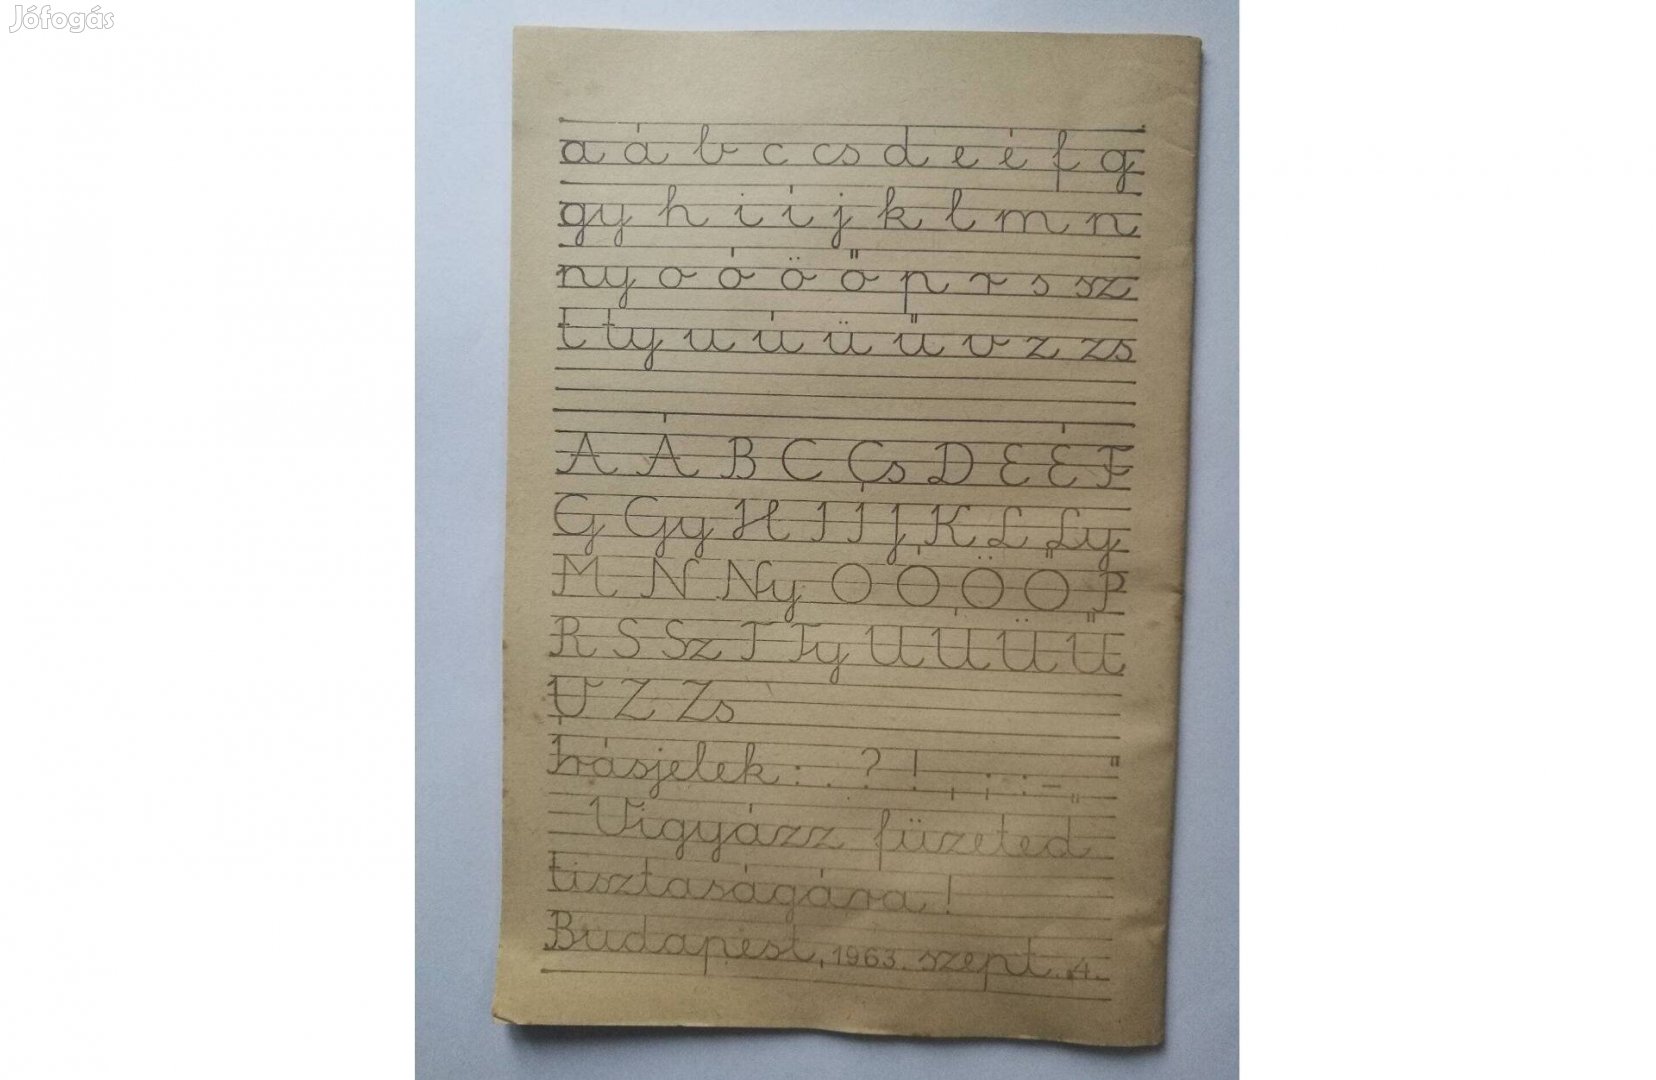 Jófogás
a á b c cs d e é f g
gy h i í j k l m n
ny o ó ö ő p r s sz
t ty u ú ü ű v z zs
A Á B C Cs D E É F
G Gy H I Í J K L Ly
M N Ny O Ó Ö Ő P
R S Sz T Ty U Ú Ü Ű
V Z Zs
Írásjelek: . ? ! , ; : - „ "
Vigyázz füzeted
tisztaságára!
Budapest, 1963. szept. 4.